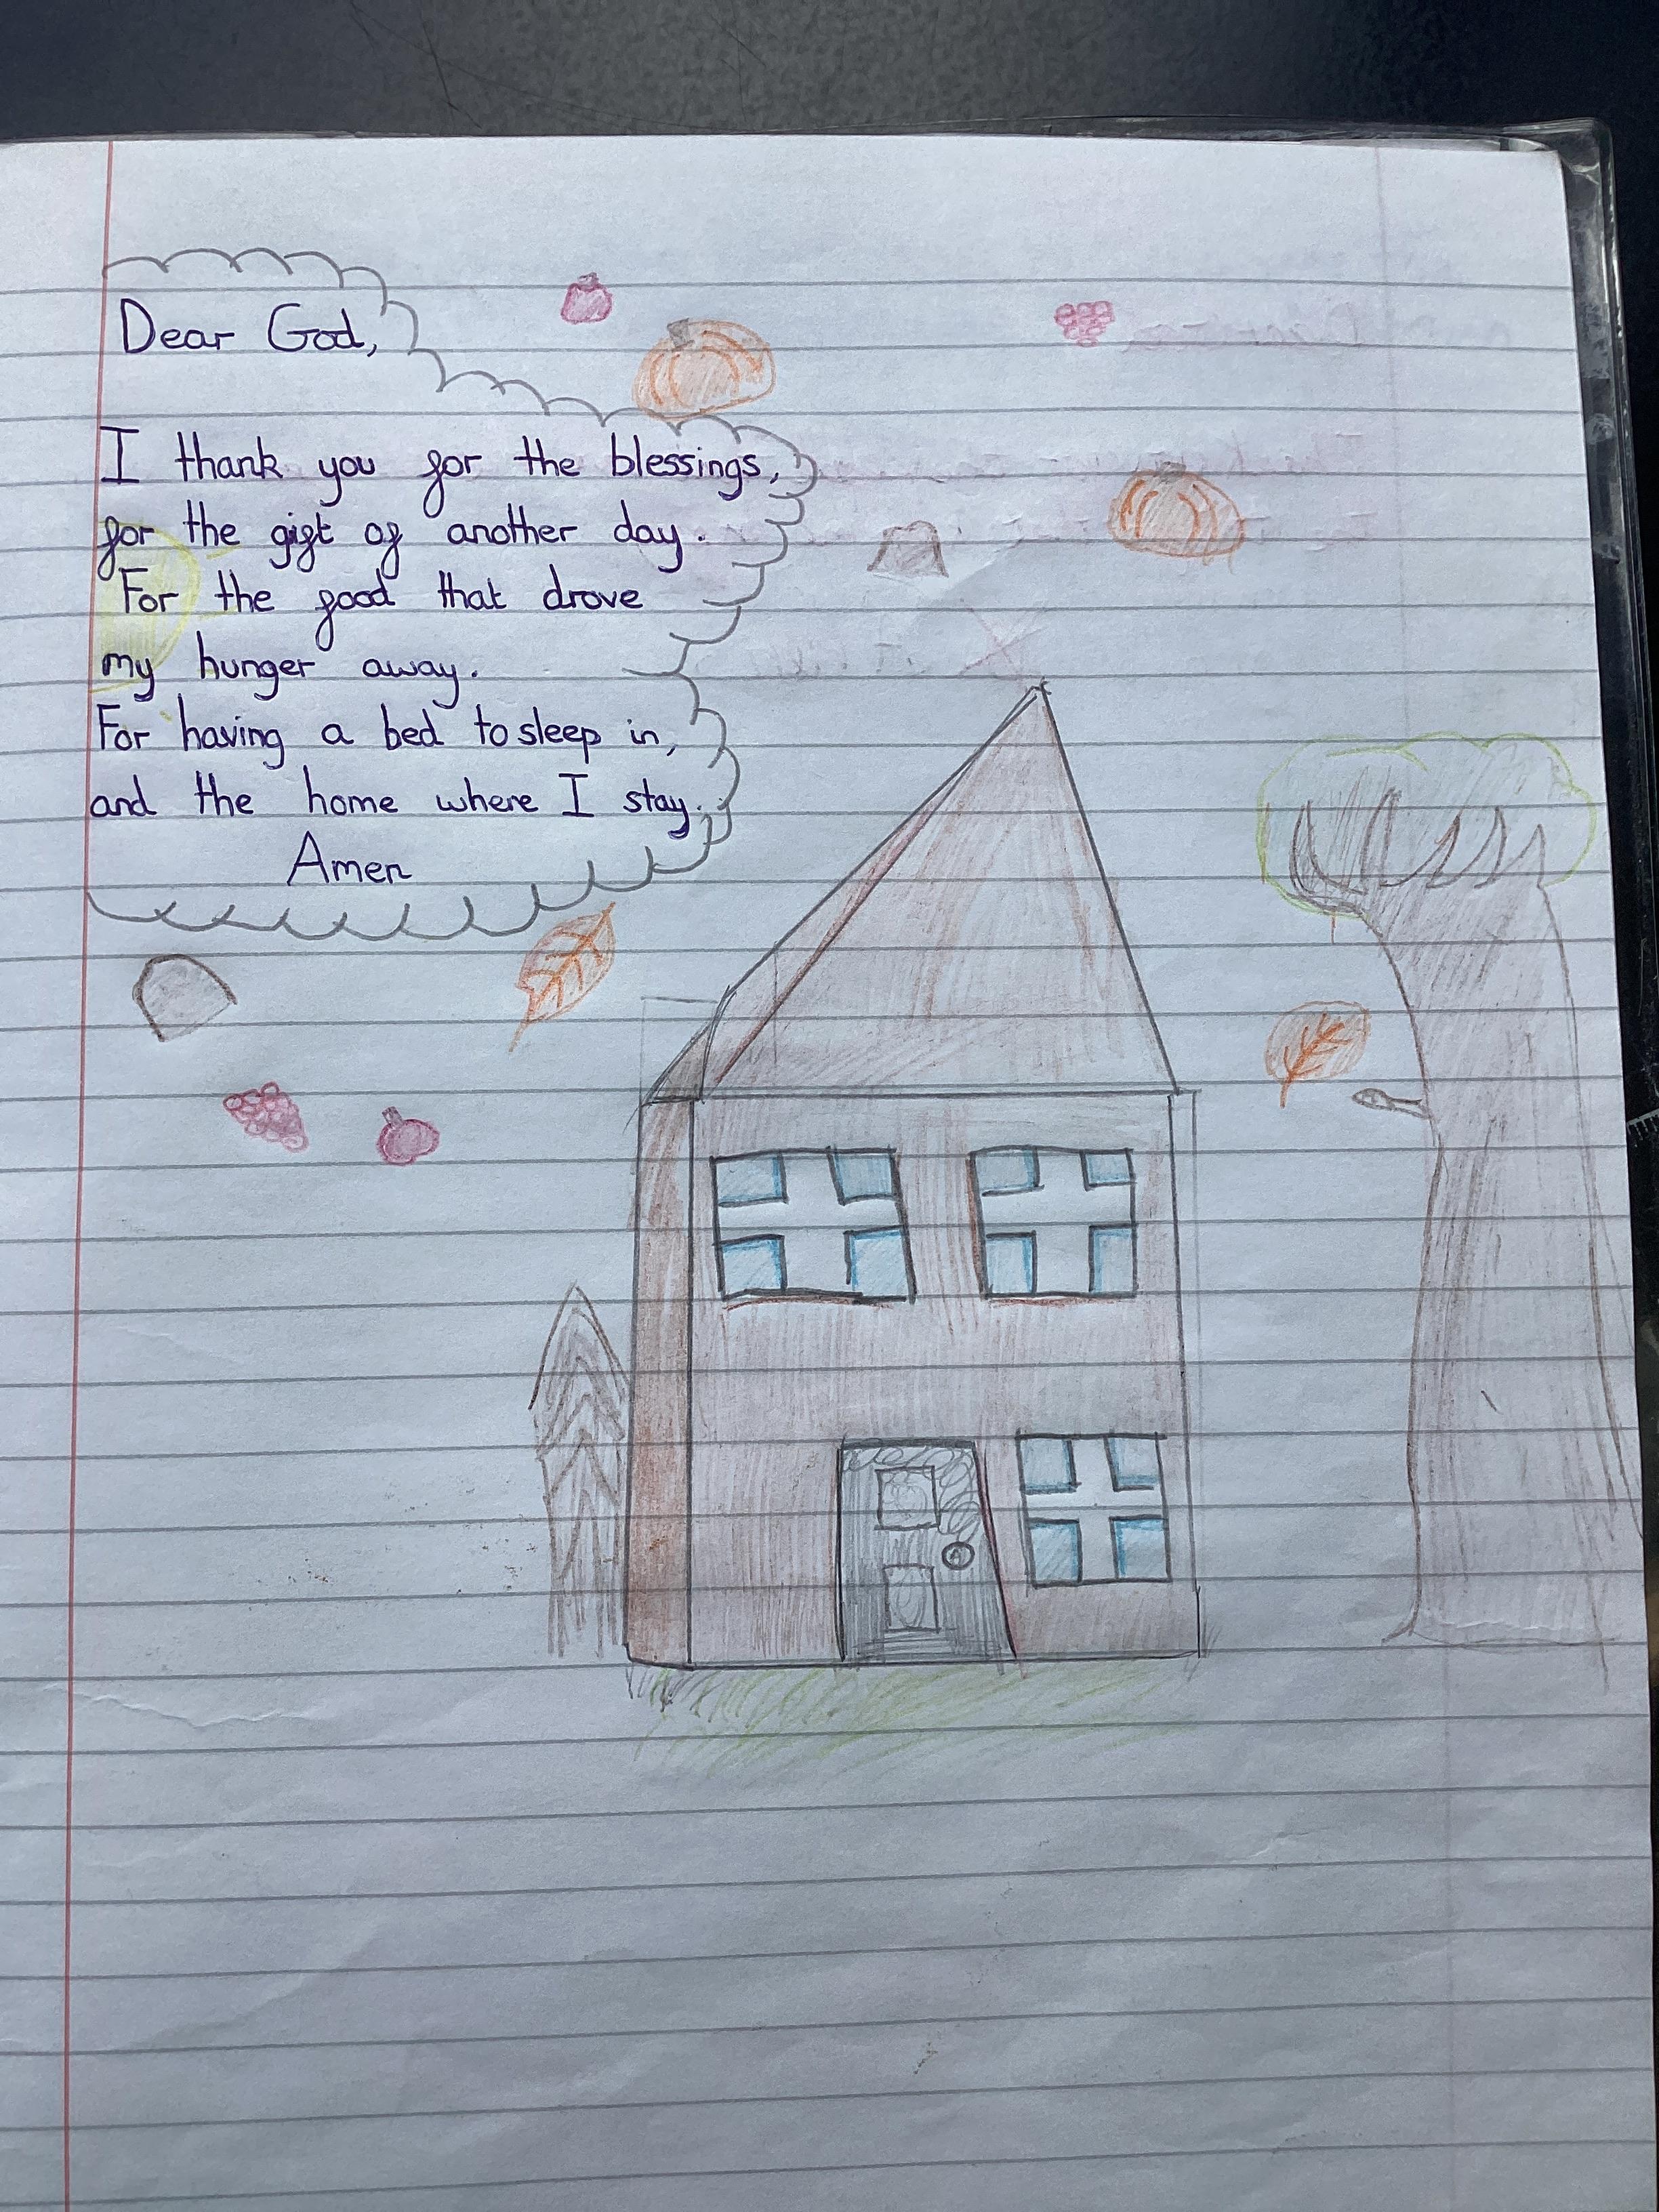 Dear God,
I thank you for the blessings,
for the gift of another day.
For the food that drove
my hunger away.
For having a bed to sleep in,
and the home where I stay.
Amen